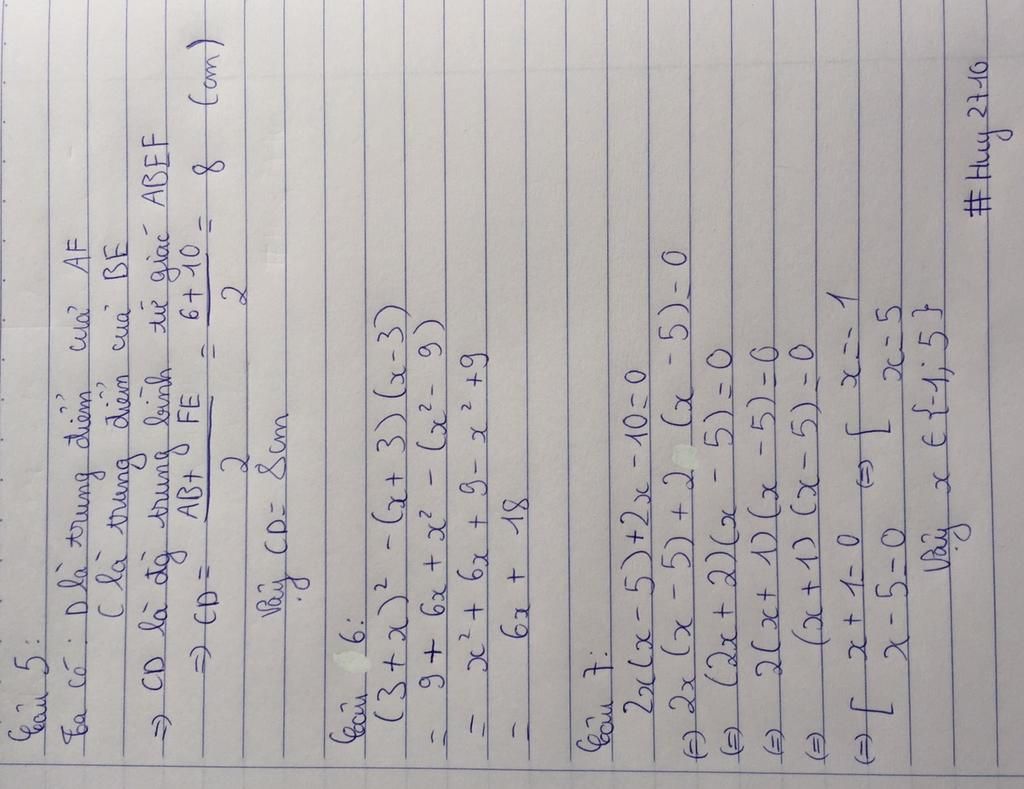 Câu 5:
Ta có: D là trung điểm của AF
C là trung điểm của BE
=> CD là đg trung bình tứ giác ABEF
=> CD = (AB + FE)/2 = (6 + 10)/2 = 8 (cm)
Vậy CD = 8cm
Câu 6:
(3 + x)² - (x + 3)(x - 3)
= 9 + 6x + x² - (x² - 9)
= x² + 6x + 9 - x² + 9
= 6x + 18
Câu 7:
2x(x - 5) + 2x - 10 = 0
(=) 2x(x - 5) + 2(x - 5) = 0
(=) (2x + 2)(x - 5) = 0
(=) 2(x + 1)(x - 5) = 0
(=) (x + 1)(x - 5) = 0
(=) [ x + 1 = 0 (=) [ x = -1
x - 5 = 0 x = 5
Vậy x ∈ {-1; 5}
# Huy 27-10